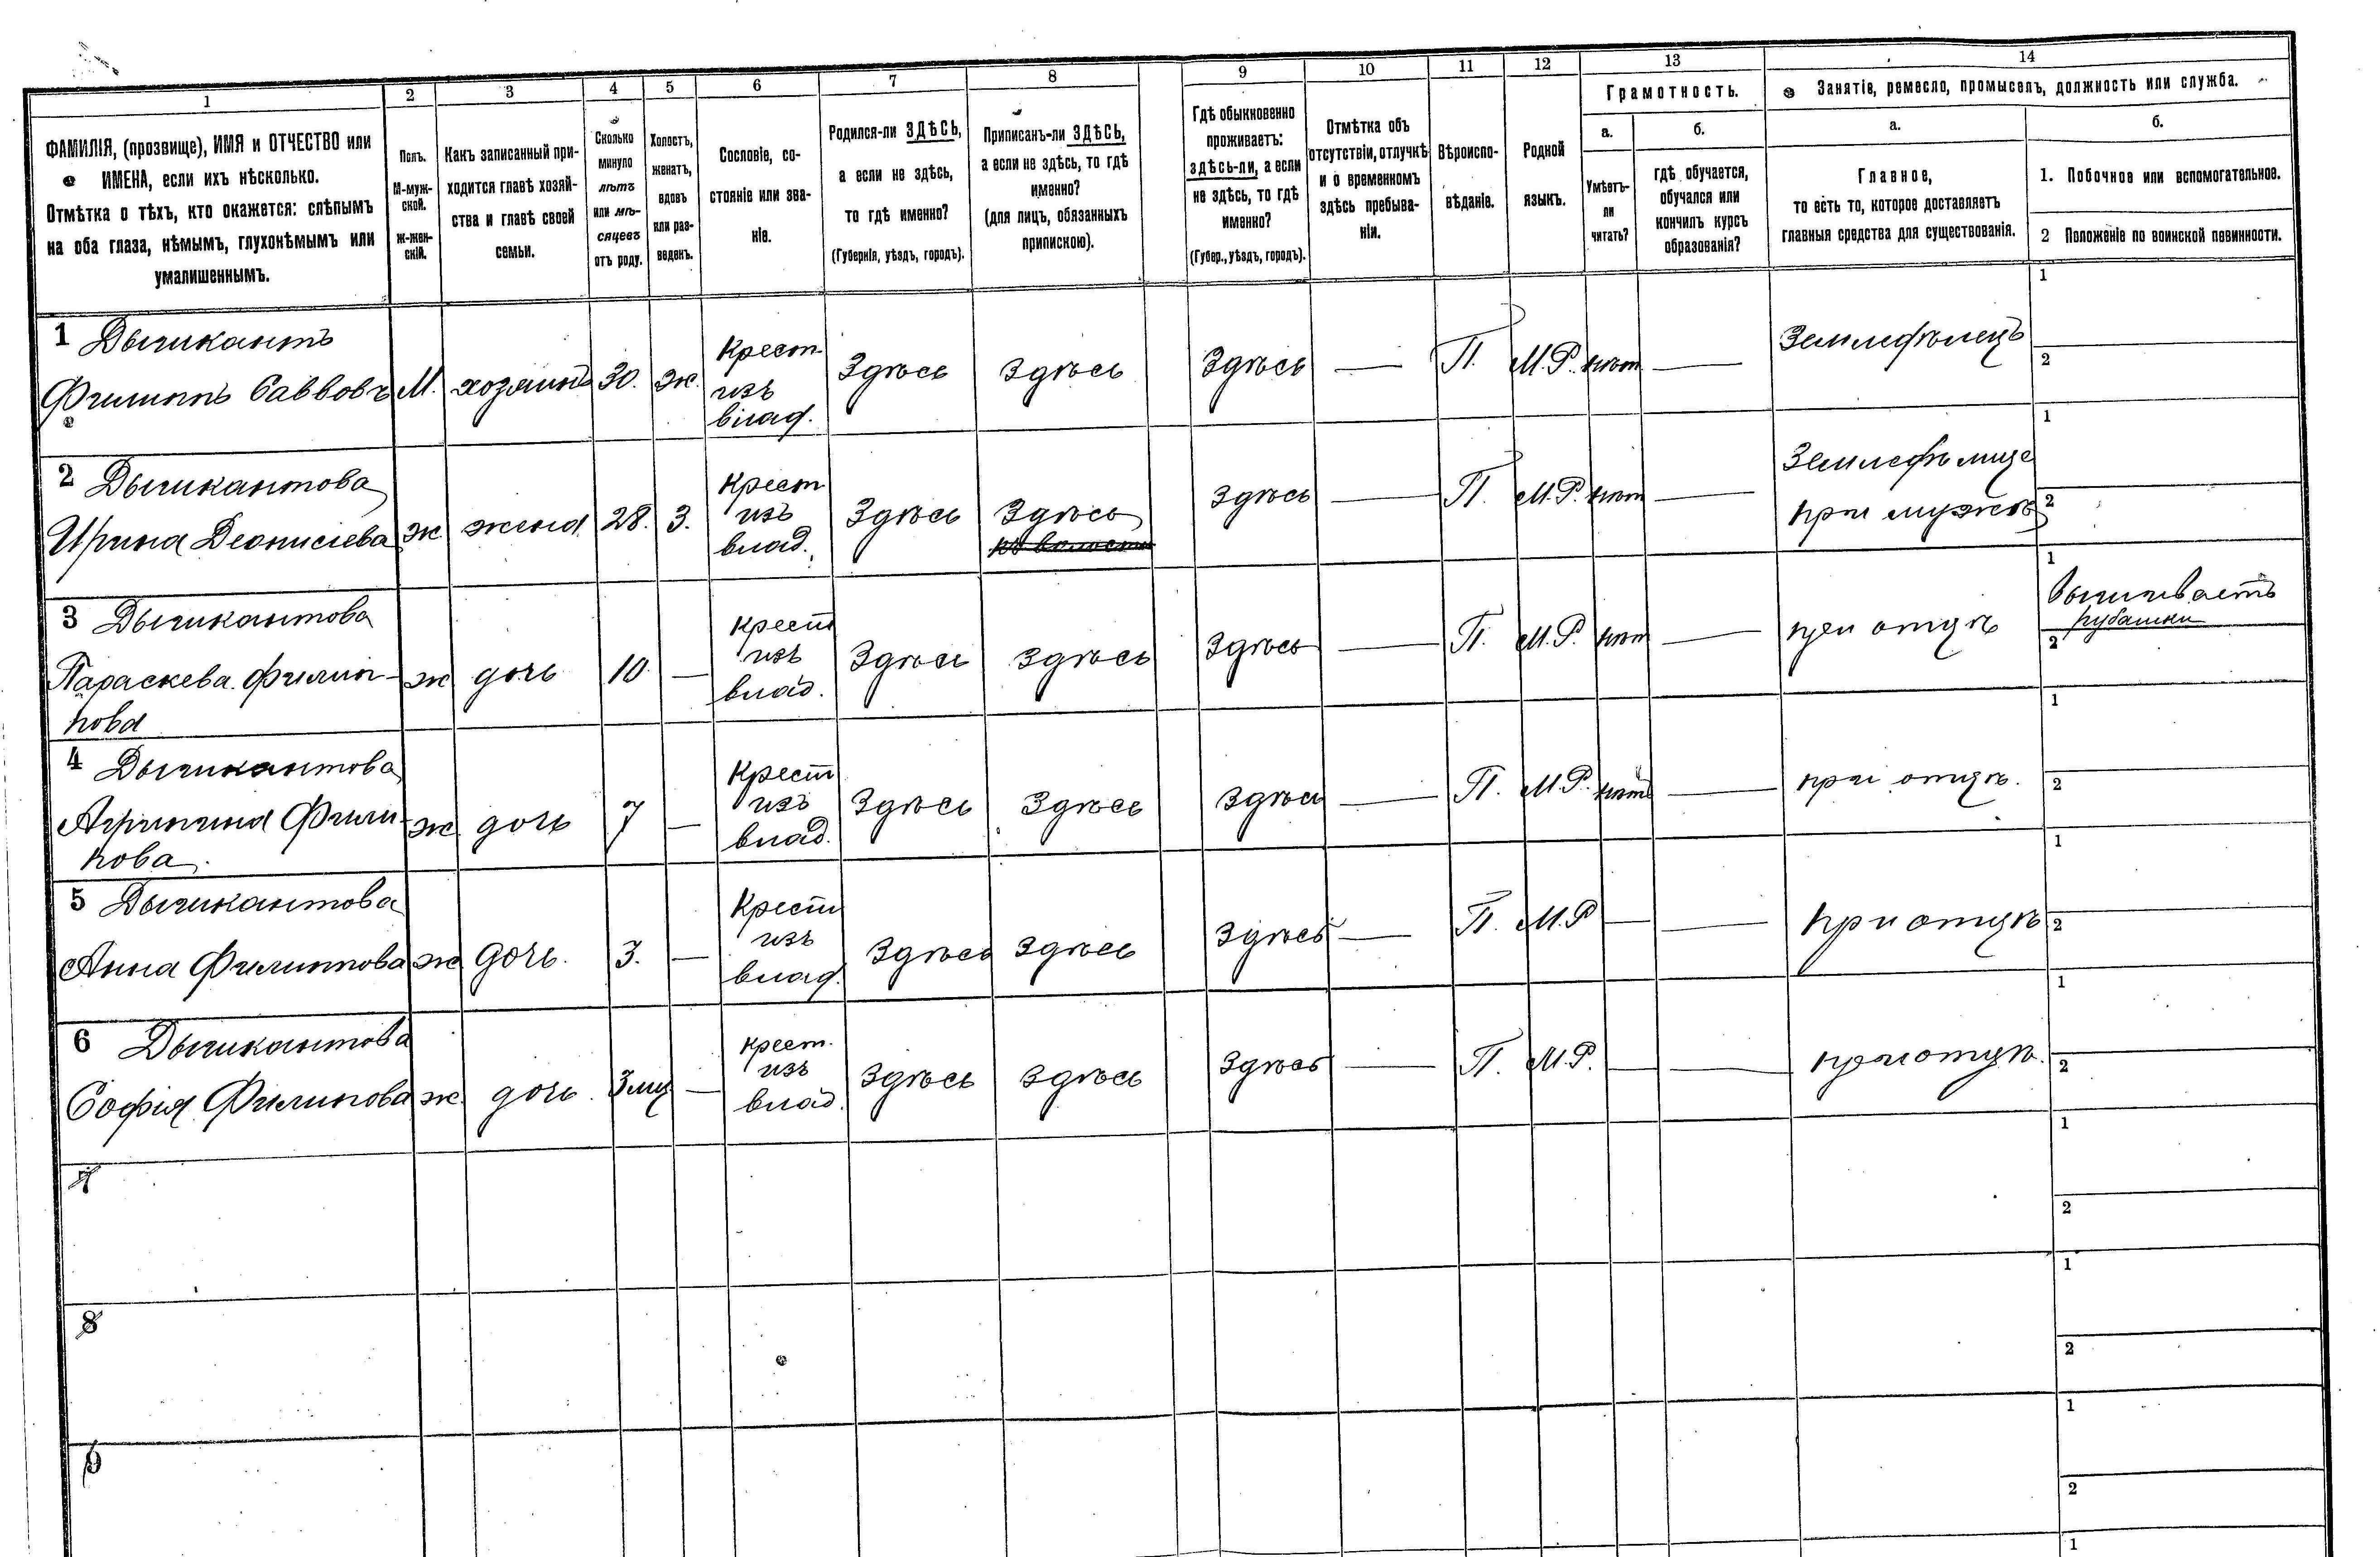 1 2 3 4 5 6 7 8 9 10 11 12 13 14
ФАМИЛІЯ, (прозвище), ИМЯ и ОТЧЕСТВО или
ИМЕНА, если ихъ нѣсколько.
Отмѣтка о тѣхъ, кто окажется: слѣпымъ
на оба глаза, нѣмымъ, глухонѣмымъ или
умалишеннымъ.
Полъ.
М-муж-
ской.
Ж-жен-
скій.
Какъ записанный при-
ходится главѣ хозяй-
ства и главѣ своей
семьи.
Сколько
минуло
лѣтъ
или мѣ-
сяцевъ
отъ роду.
Холостъ,
женатъ,
вдовъ
или раз-
веденъ.
Сословіе, со-
стояніе или зва-
ніе.
Родился-ли ЗДѢСЬ,
а если не здѣсь,
то гдѣ именно?
(Губернія, уѣздъ, городъ).
Приписанъ-ли ЗДѢСЬ,
а если не здѣсь, то гдѣ
именно?
(для лицъ, обязанныхъ
припискою).
Гдѣ обыкновенно
проживаетъ:
здѣсь-ли, а если
не здѣсь, то гдѣ
именно?
(Губер., уѣздъ, городъ).
Отмѣтка объ
отсутствіи, отлучкѣ
и о временномъ
здѣсь пребыва-
ніи.
Вѣроиспо-
вѣданіе.
Родной
языкъ.
Грамотность.
а.
Умѣетъ-
ли
читать?
б.
гдѣ обучается,
обучался или
кончилъ курсъ
образованія?
Занятіе, ремесло, промыселъ, должность или служба.
а.
Главное,
то есть то, которое доставляетъ
главныя средства для существованія.
б.
1. Побочное или вспомогательное.
2 Положеніе по воинской повинности.
1 Дычикантъ
Филиппъ Савовъ М. хозяинъ 30. ж. Крест изъ влад. Здѣсь Здѣсь Здѣсь — П. М.Р. нѣт — Земледѣлецъ 1 2
2 Дычикантова
Ирина Деонисіева ж жена 28. З. Крест изъ влад. Здѣсь Здѣсь Здѣсь — П. М.Р. нѣт — при мужѣ 1 2
3 Дычикантова
Параскева Филип-
пова ж дочь 10 — Крест изъ влад. Здѣсь Здѣсь Здѣсь — П. М.Р. нѣт — при отцѣ 1 Вышиваетъ
рубашки 2
4 Дычикантова
Агрипина Фили-
пова ж дочь 7 — Крест изъ влад. Здѣсь Здѣсь Здѣсь — П. М.Р. нѣтъ — при отцѣ. 1 2
5 Дычикантова
Анна Филиппова ж дочь. 3. — Крест изъ влад. Здѣсь Здѣсь Здѣсь — П. М.Р — — при отцѣ 1 2
6 Дычикантова
Софія Филипова ж. дочь. 3 мц — крест. изъ влад. Здѣсь Здѣсь Здѣсь — П. М.Р. — — при отцѣ. 1 2
7 1 2
8 1 2
9 1 2
1